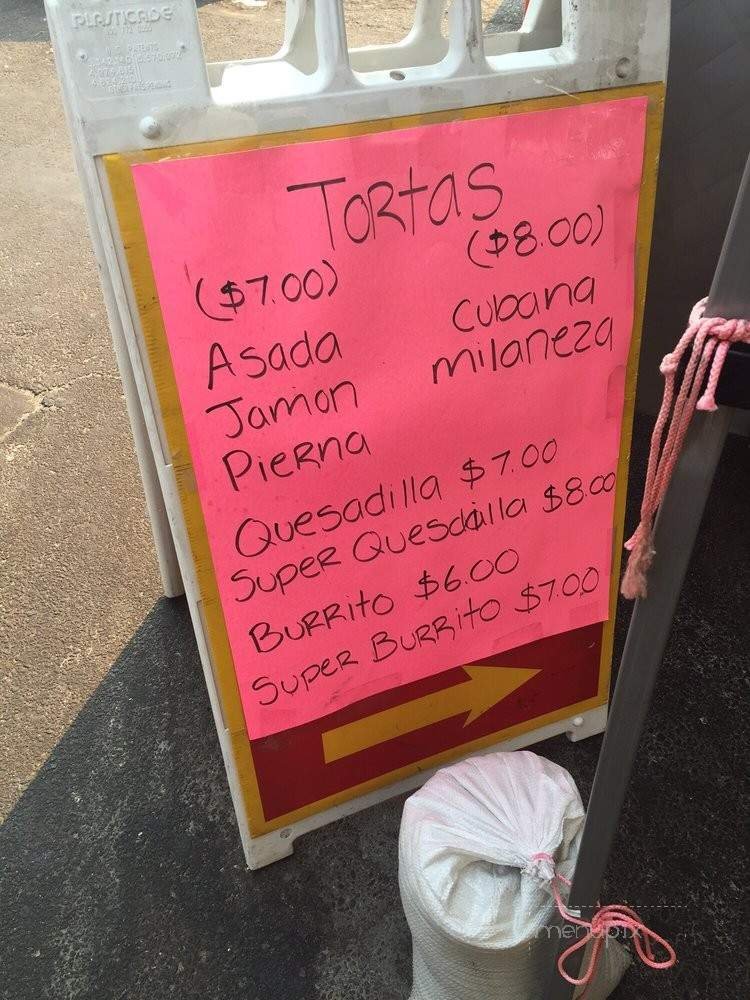 PLASTICADE
U.S. PATENTS
Tortas
($7.00)
($8.00)
Asada
Jamon
Pierna
Cubana
milaneza
Quesadilla $7.00
Super Quesdailla $8.00
Burrito $6.00
Super Burrito $7.00
menupix